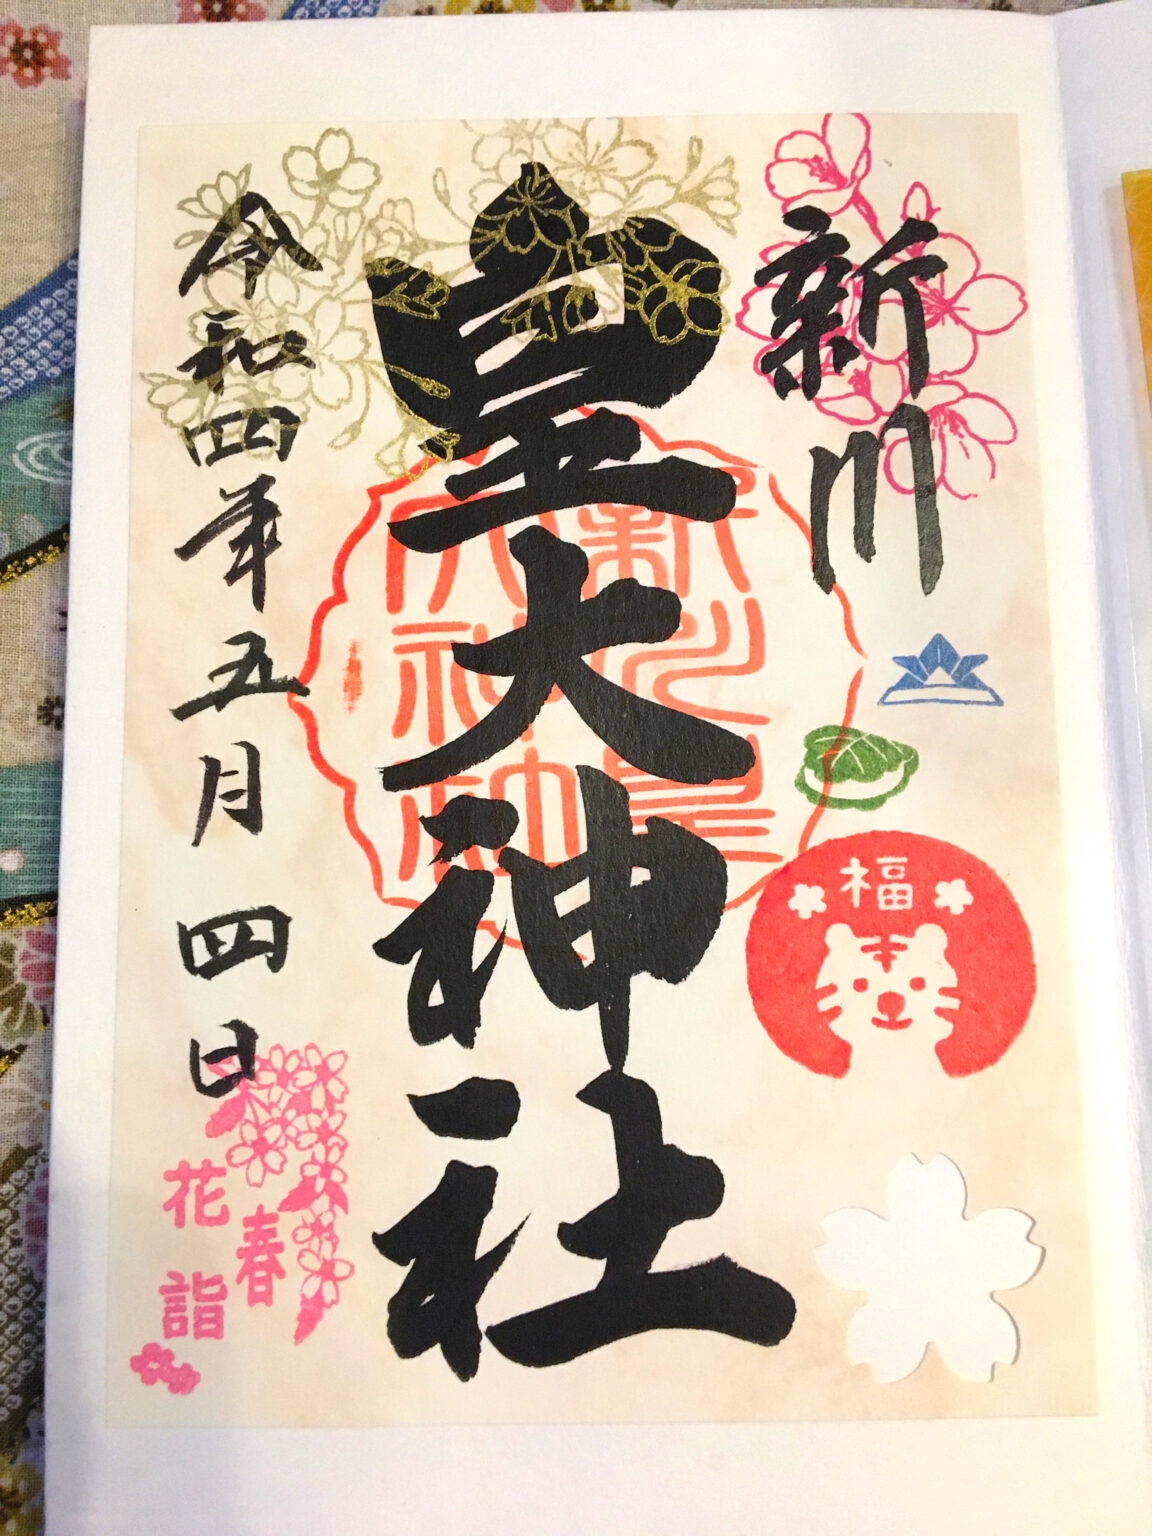 新川
皇大神社
令和四年五月四日
新川皇
大神社印
福
春
花詣